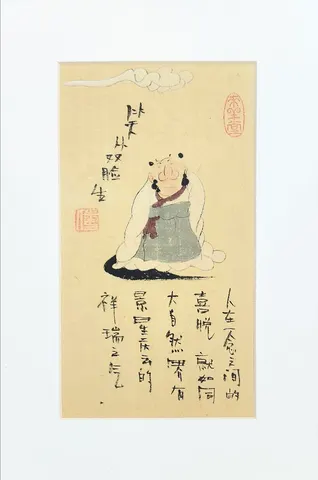 笑从双脸生
人在一念之间的
喜悦就如同
大自然界有
景星庆云的
祥瑞之气